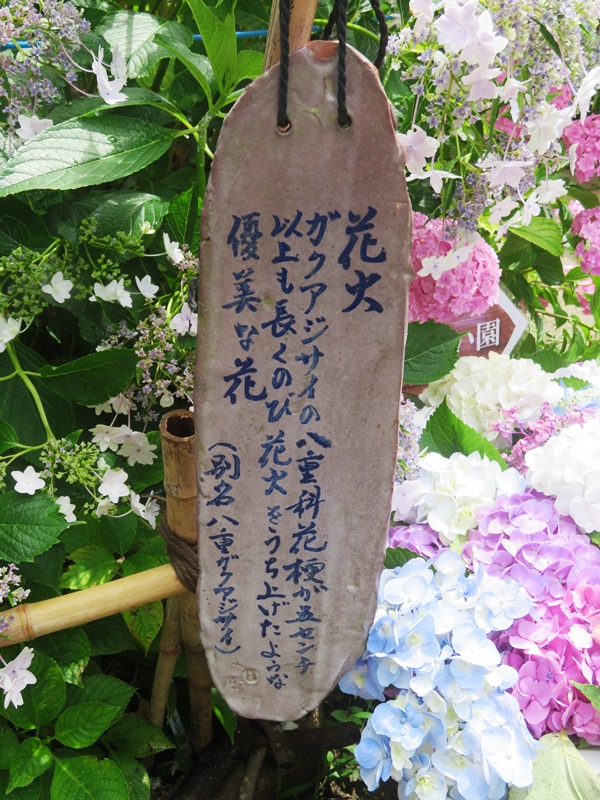 花火
ガクアジサイの八重科花梗が五センチ
以上も長くのび花火をうち上げたような
優美な花
(別名八重ガクアジサイ)
園